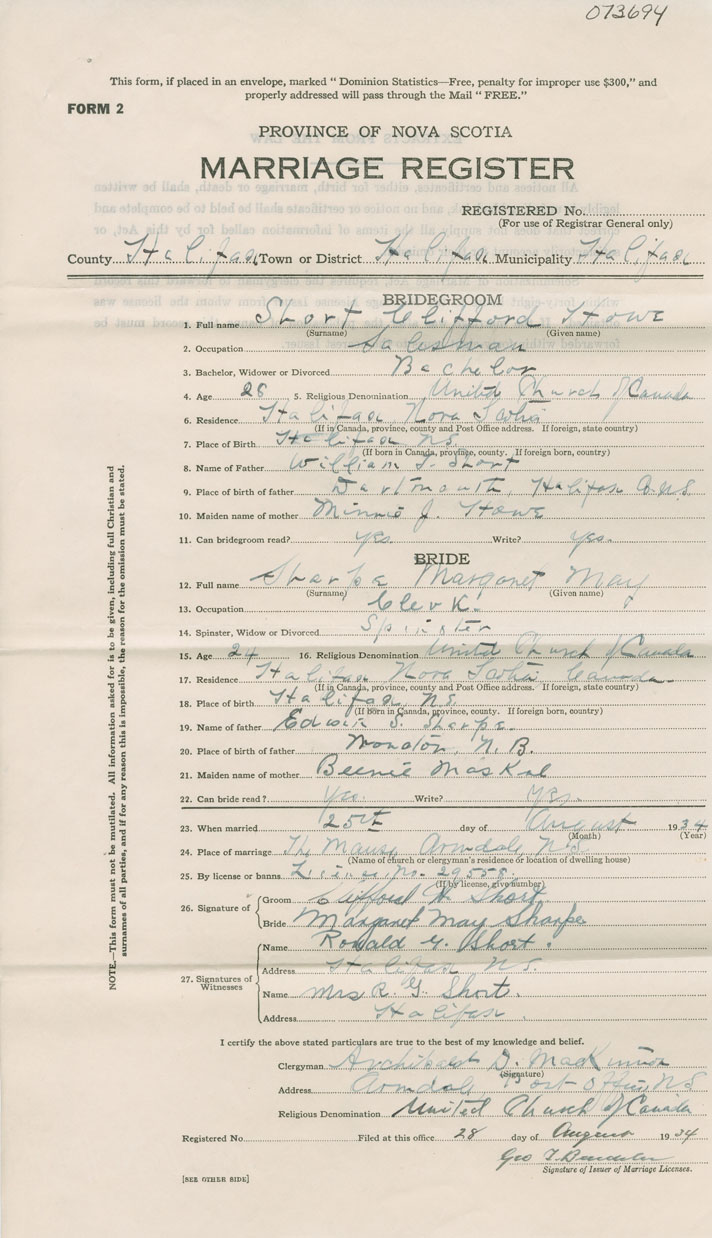 073694
This form, if placed in an envelope, marked "Dominion Statistics—Free, penalty for improper use $300," and
properly addressed will pass through the Mail "FREE."
FORM 2
PROVINCE OF NOVA SCOTIA
MARRIAGE REGISTER
REGISTERED No.
(For use of Registrar General only)
County Halifax Town or District Halifax Municipality Halifax
BRIDEGROOM
1. Full name Short Clifford Howe
(Surname) (Given name)
2. Occupation Salesman
3. Bachelor, Widower or Divorced Bachelor
4. Age 28 5. Religious Denomination United Church of Canada
6. Residence Halifax Nova Scotia
(If in Canada, province, county and Post Office address. If foreign, state country)
7. Place of Birth Halifax N.S.
(If born in Canada, province, county. If foreign born, country)
8. Name of Father William J. Short
9. Place of birth of father Dartmouth, Halifax Co. N.S.
10. Maiden name of mother Minnie J. Howe
11. Can bridegroom read? yes. Write? yes.
BRIDE
12. Full name Sharpe Margaret May
(Surname) (Given name)
13. Occupation Clerk.
14. Spinster, Widow or Divorced Spinster
15. Age 24 16. Religious Denomination United Church of Canada
17. Residence Halifax Nova Scotia Canada
(If in Canada, province, county and Post Office address. If foreign, state country)
18. Place of birth Halifax, N.S.
(If born in Canada, province, county. If foreign born, country)
19. Name of father Edwin S. Sharpe.
20. Place of birth of father Moncton, N.B.
21. Maiden name of mother
22. Can bride read? Yes. Write? Yes.
23. When married 25th day of August 1934
(Month) (Year)
24. Place of marriage The Manse, Armdale, N.S.
(Name of church or clergyman's residence or location of dwelling house)
25. By license or banns License, No. 29558.
(If by license, give number)
26. Signature of Groom Clifford H. Short
Bride Margaret May Sharpe
27. Signatures of Witnesses Name Ronald G. Short.
Address Halifax N.S.
Name Mrs R. G. Short.
Address Halifax.
I certify the above stated particulars are true to the best of my knowledge and belief.
Clergyman Archibald D. MacKinnon
(Signature)
Address Armdale Post Office, N.S.
Religious Denomination United Church of Canada
Registered No. Filed at this office 28 day of August 1934
Geo T.
Signature of Issuer of Marriage Licenses.
[SEE OTHER SIDE]
NOTE.—This form must not be mutilated. All information asked for is to be given, including full Christian and
surnames of all parties, and if for any reason this is impossible, the reason for the omission must be stated.